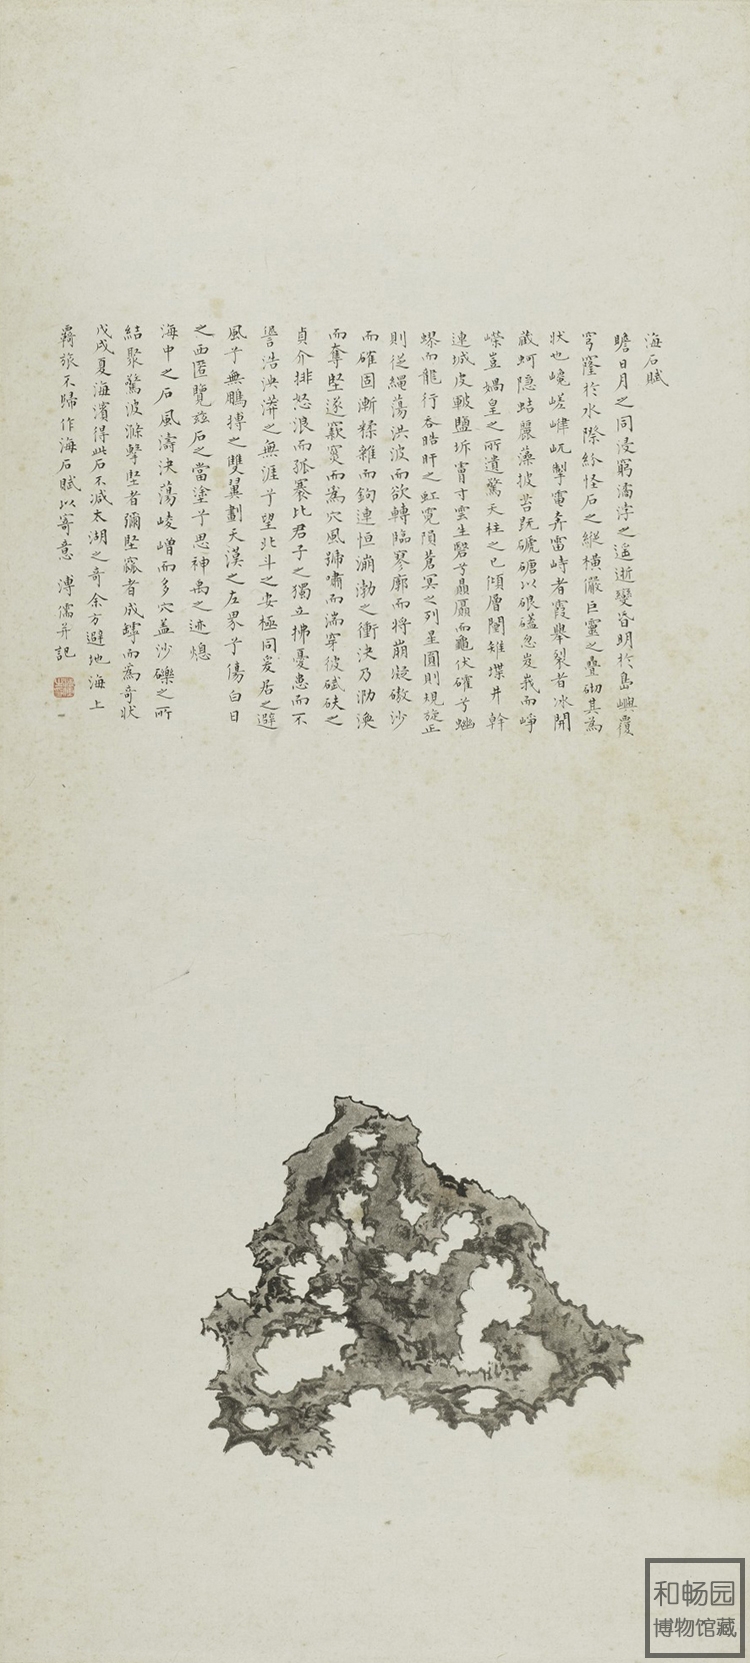 海石賦
瞻日月之同浸窮濡浡之遙逝變昏明於島嶼覆
穹窿於水際紛怪石之縱橫儼巨靈之疊砌其為
狀也巉嵯嵂屼掣電奔雷峙者霞舉裂者冰開
藏蚵隱蛣麗藻披苔既磈磄以硍磕忽岌峩而崢
嶸豈媧皇之所遺驚天柱之已傾層闉雉堞井幹
連城皮皴鹽坼膚寸雲生礐兮贔屭而龜伏確兮蚴
蟉而龍行吞皓旰之虹霓隕蒼冥之列星圓則規旋正
則從繩蕩洪波而欲轉臨寥廓而将崩凝磝沙
而確固漸糅雜而鉤連恒漰渤之衝決乃泐渙
而奪堅遂窾窾而為穴風號嘯而湍穿彼碔砆之
貞介排怒浪而孤褰比君子之獨立拂憂患而不
譽浩泱漭之無涯兮望北斗之安極同爰居之避
風兮無鵬摶之雙翼劃天漢之左界兮傷白日
之西匿覽茲石之當塗兮思神禹之迹熄
海中之石風濤決蕩崚嶒而多穴盖沙礫之所
結聚驚波滌擊堅者彌堅窳者成罅而為奇狀
戊戌夏海濱得此石不减太湖之奇余方避地海上
羇旅不歸作海石賦以寄意 溥儒并記
和畅园
博物馆藏